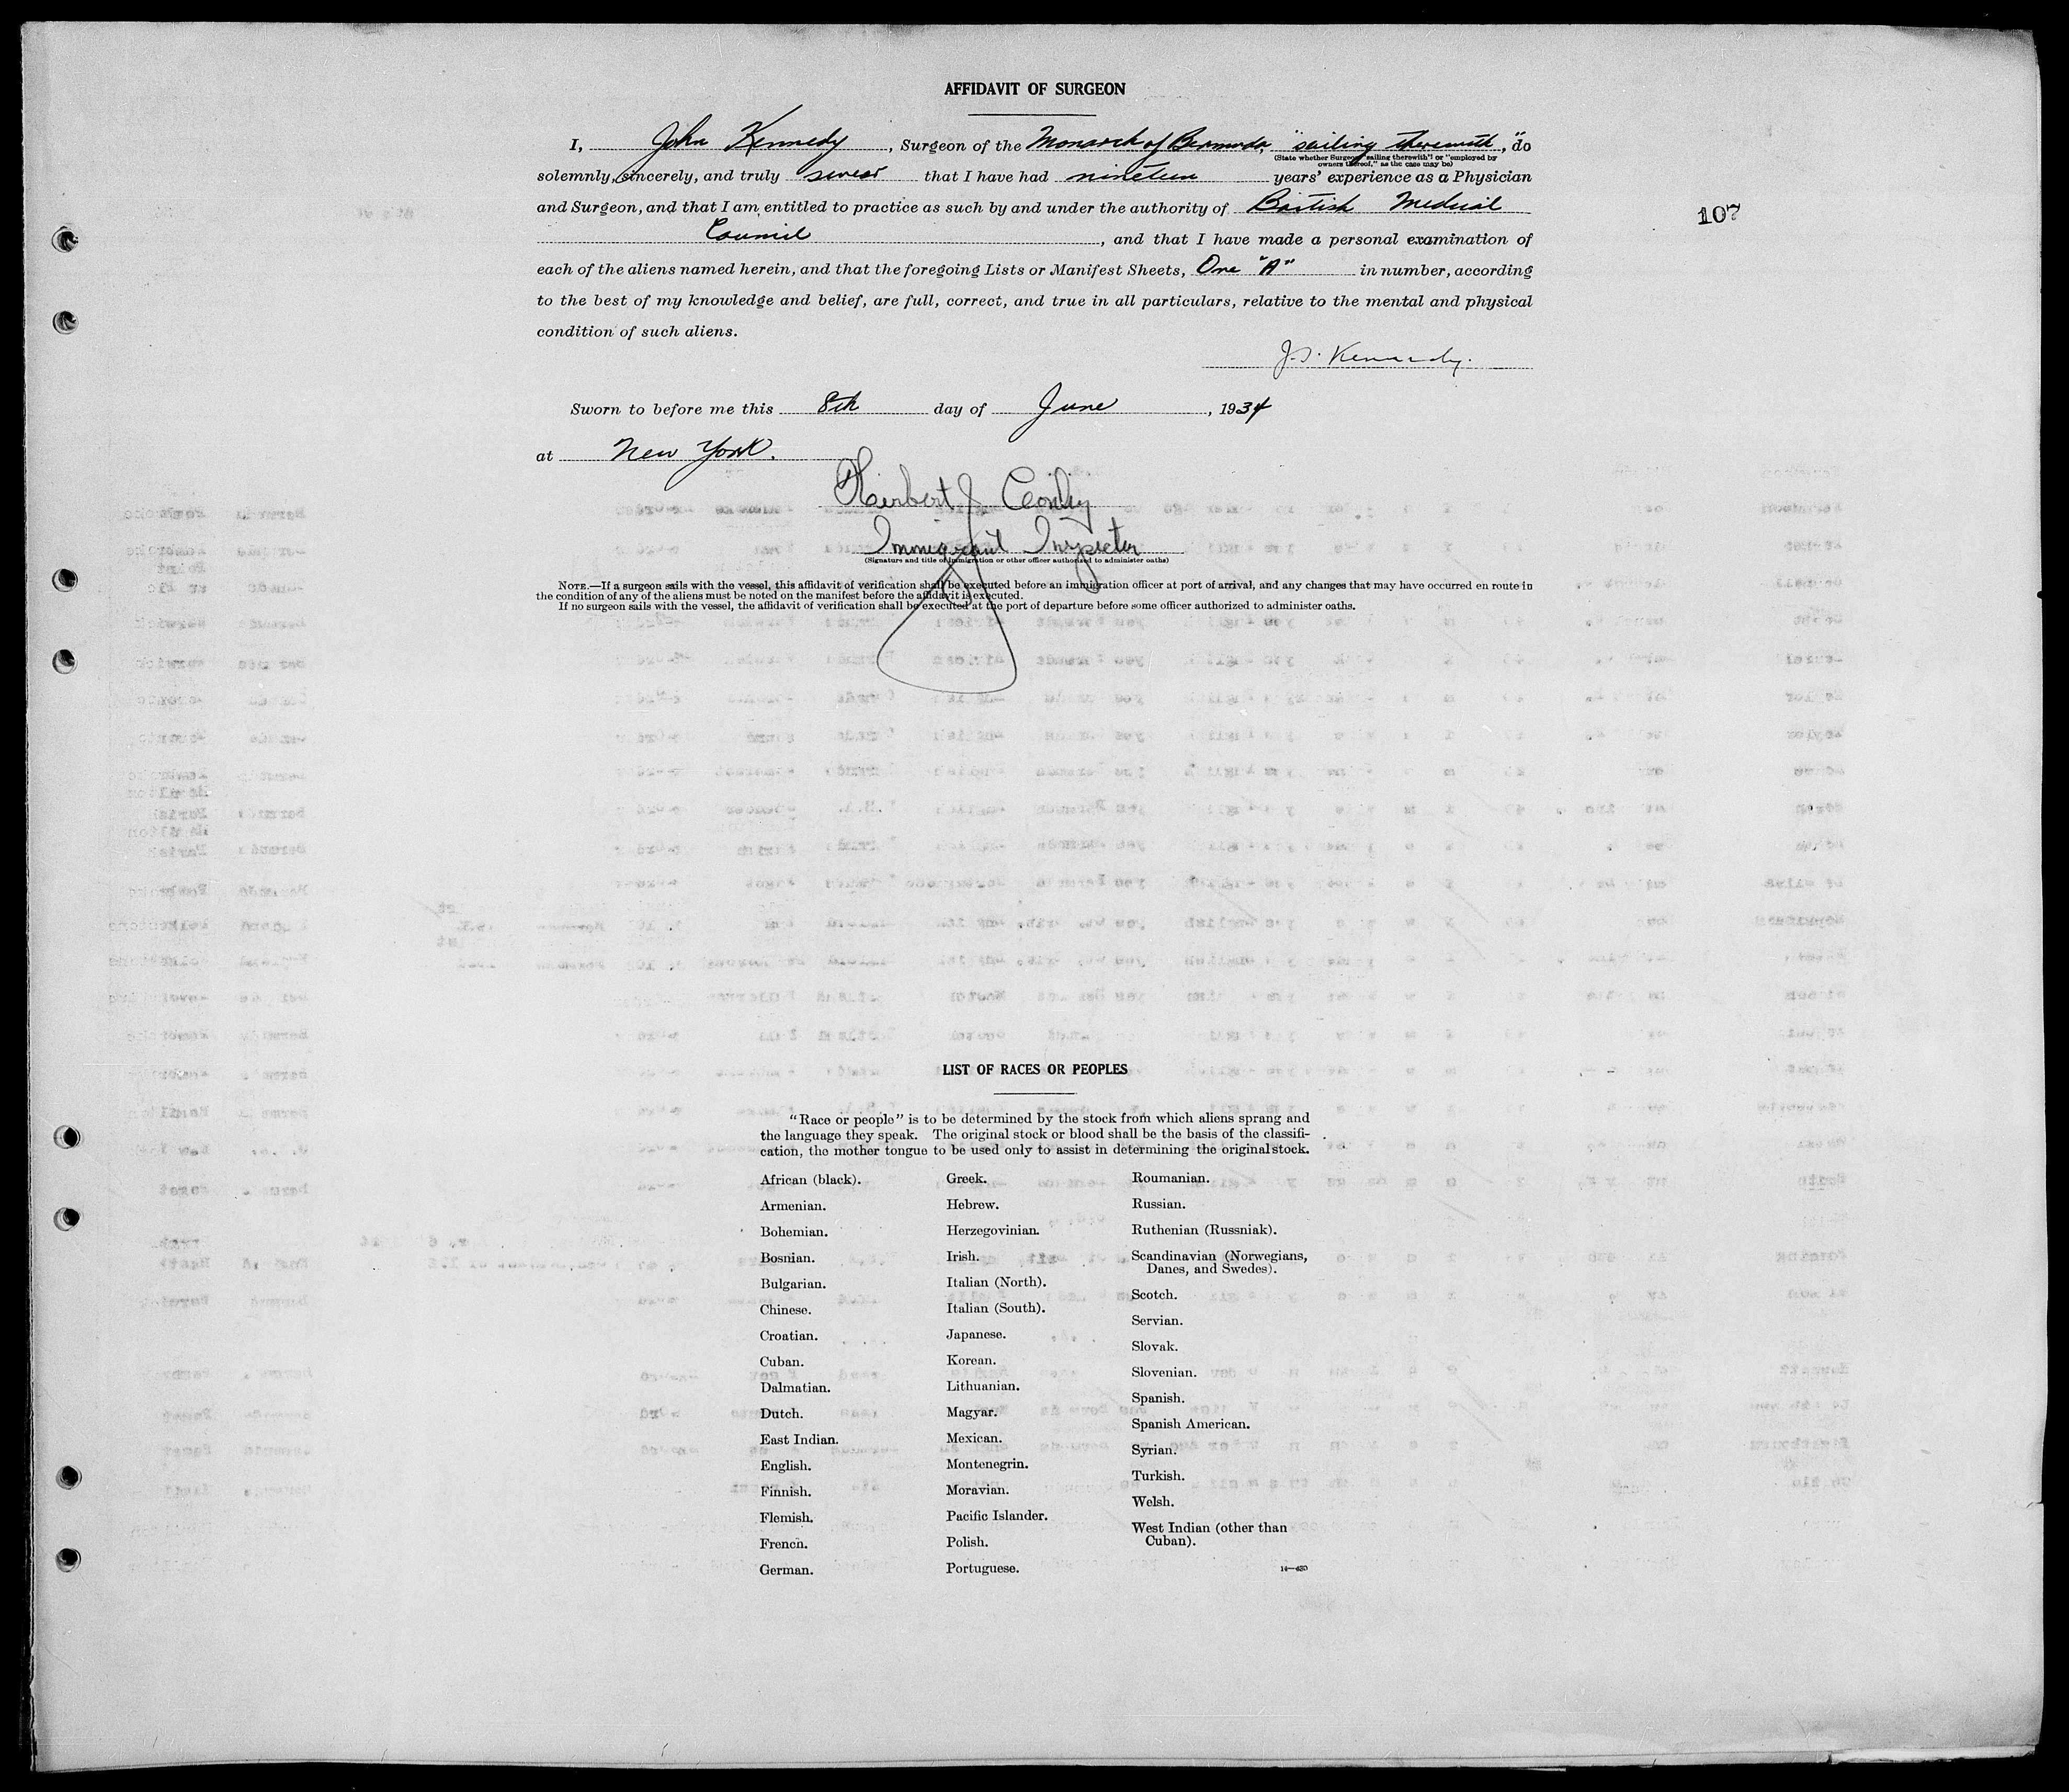 AFFIDAVIT OF SURGEON
I, John Kennedy, Surgeon of the Monarch of Bermuda, "sailing therewith," do
(State whether Surgeon "sailing therewith" or "employed by
owners thereof," as the case may be)
solemnly, sincerely, and truly swear that I have had nineteen years' experience as a Physician
and Surgeon, and that I am entitled to practice as such by and under the authority of British Medical
107
Council, and that I have made a personal examination of
each of the aliens named herein, and that the foregoing Lists or Manifest Sheets, One "A" in number, according
to the best of my knowledge and belief, are full, correct, and true in all particulars, relative to the mental and physical
condition of such aliens.
Kennedy.
Sworn to before me this 8th day of June, 1934
at New York.
Herbert J.
Immigrant Inspector
(Signature and title of immigration or other officer authorized to administer oaths)
NOTE.—If a surgeon sails with the vessel, this affidavit of verification shall be executed before an immigration officer at port of arrival, and any changes that may have occurred en route in
the condition of any of the aliens must be noted on the manifest before the affidavit is executed.
If no surgeon sails with the vessel, the affidavit of verification shall be executed at the port of departure before some officer authorized to administer oaths.
LIST OF RACES OR PEOPLES
"Race or people" is to be determined by the stock from which aliens sprang and
the language they speak. The original stock or blood shall be the basis of the classifi-
cation, the mother tongue to be used only to assist in determining the original stock.
African (black).
Armenian.
Bohemian.
Bosnian.
Bulgarian.
Chinese.
Croatian.
Cuban.
Dalmatian.
Dutch.
East Indian.
English.
Finnish.
Flemish.
French.
German.
Greek.
Hebrew.
Herzegovinian.
Irish.
Italian (North).
Italian (South).
Japanese.
Korean.
Lithuanian.
Magyar.
Mexican.
Montenegrin.
Moravian.
Pacific Islander.
Polish.
Portuguese.
Roumanian.
Russian.
Ruthenian (Russniak).
Scandinavian (Norwegians,
Danes, and Swedes).
Scotch.
Servian.
Slovak.
Slovenian.
Spanish.
Spanish American.
Syrian.
Turkish.
Welsh.
West Indian (other than
Cuban).